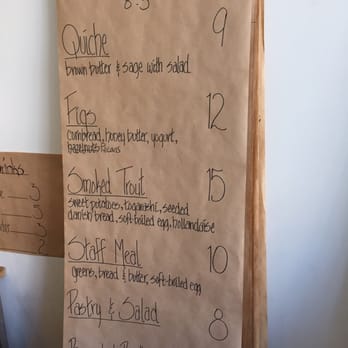 8-3
Quiche 9
brown butter & sage with salad
Figs 12
cornbread, honey butter, yogurt,
hazelnuts Pecans
Smoked Trout 15
sweet potatoes, togarashi, seeded
danish bread, soft-boiled egg, hollandaise
Staff Meal 10
greens, bread & butter, soft-boiled egg
Pastry & Salad 8